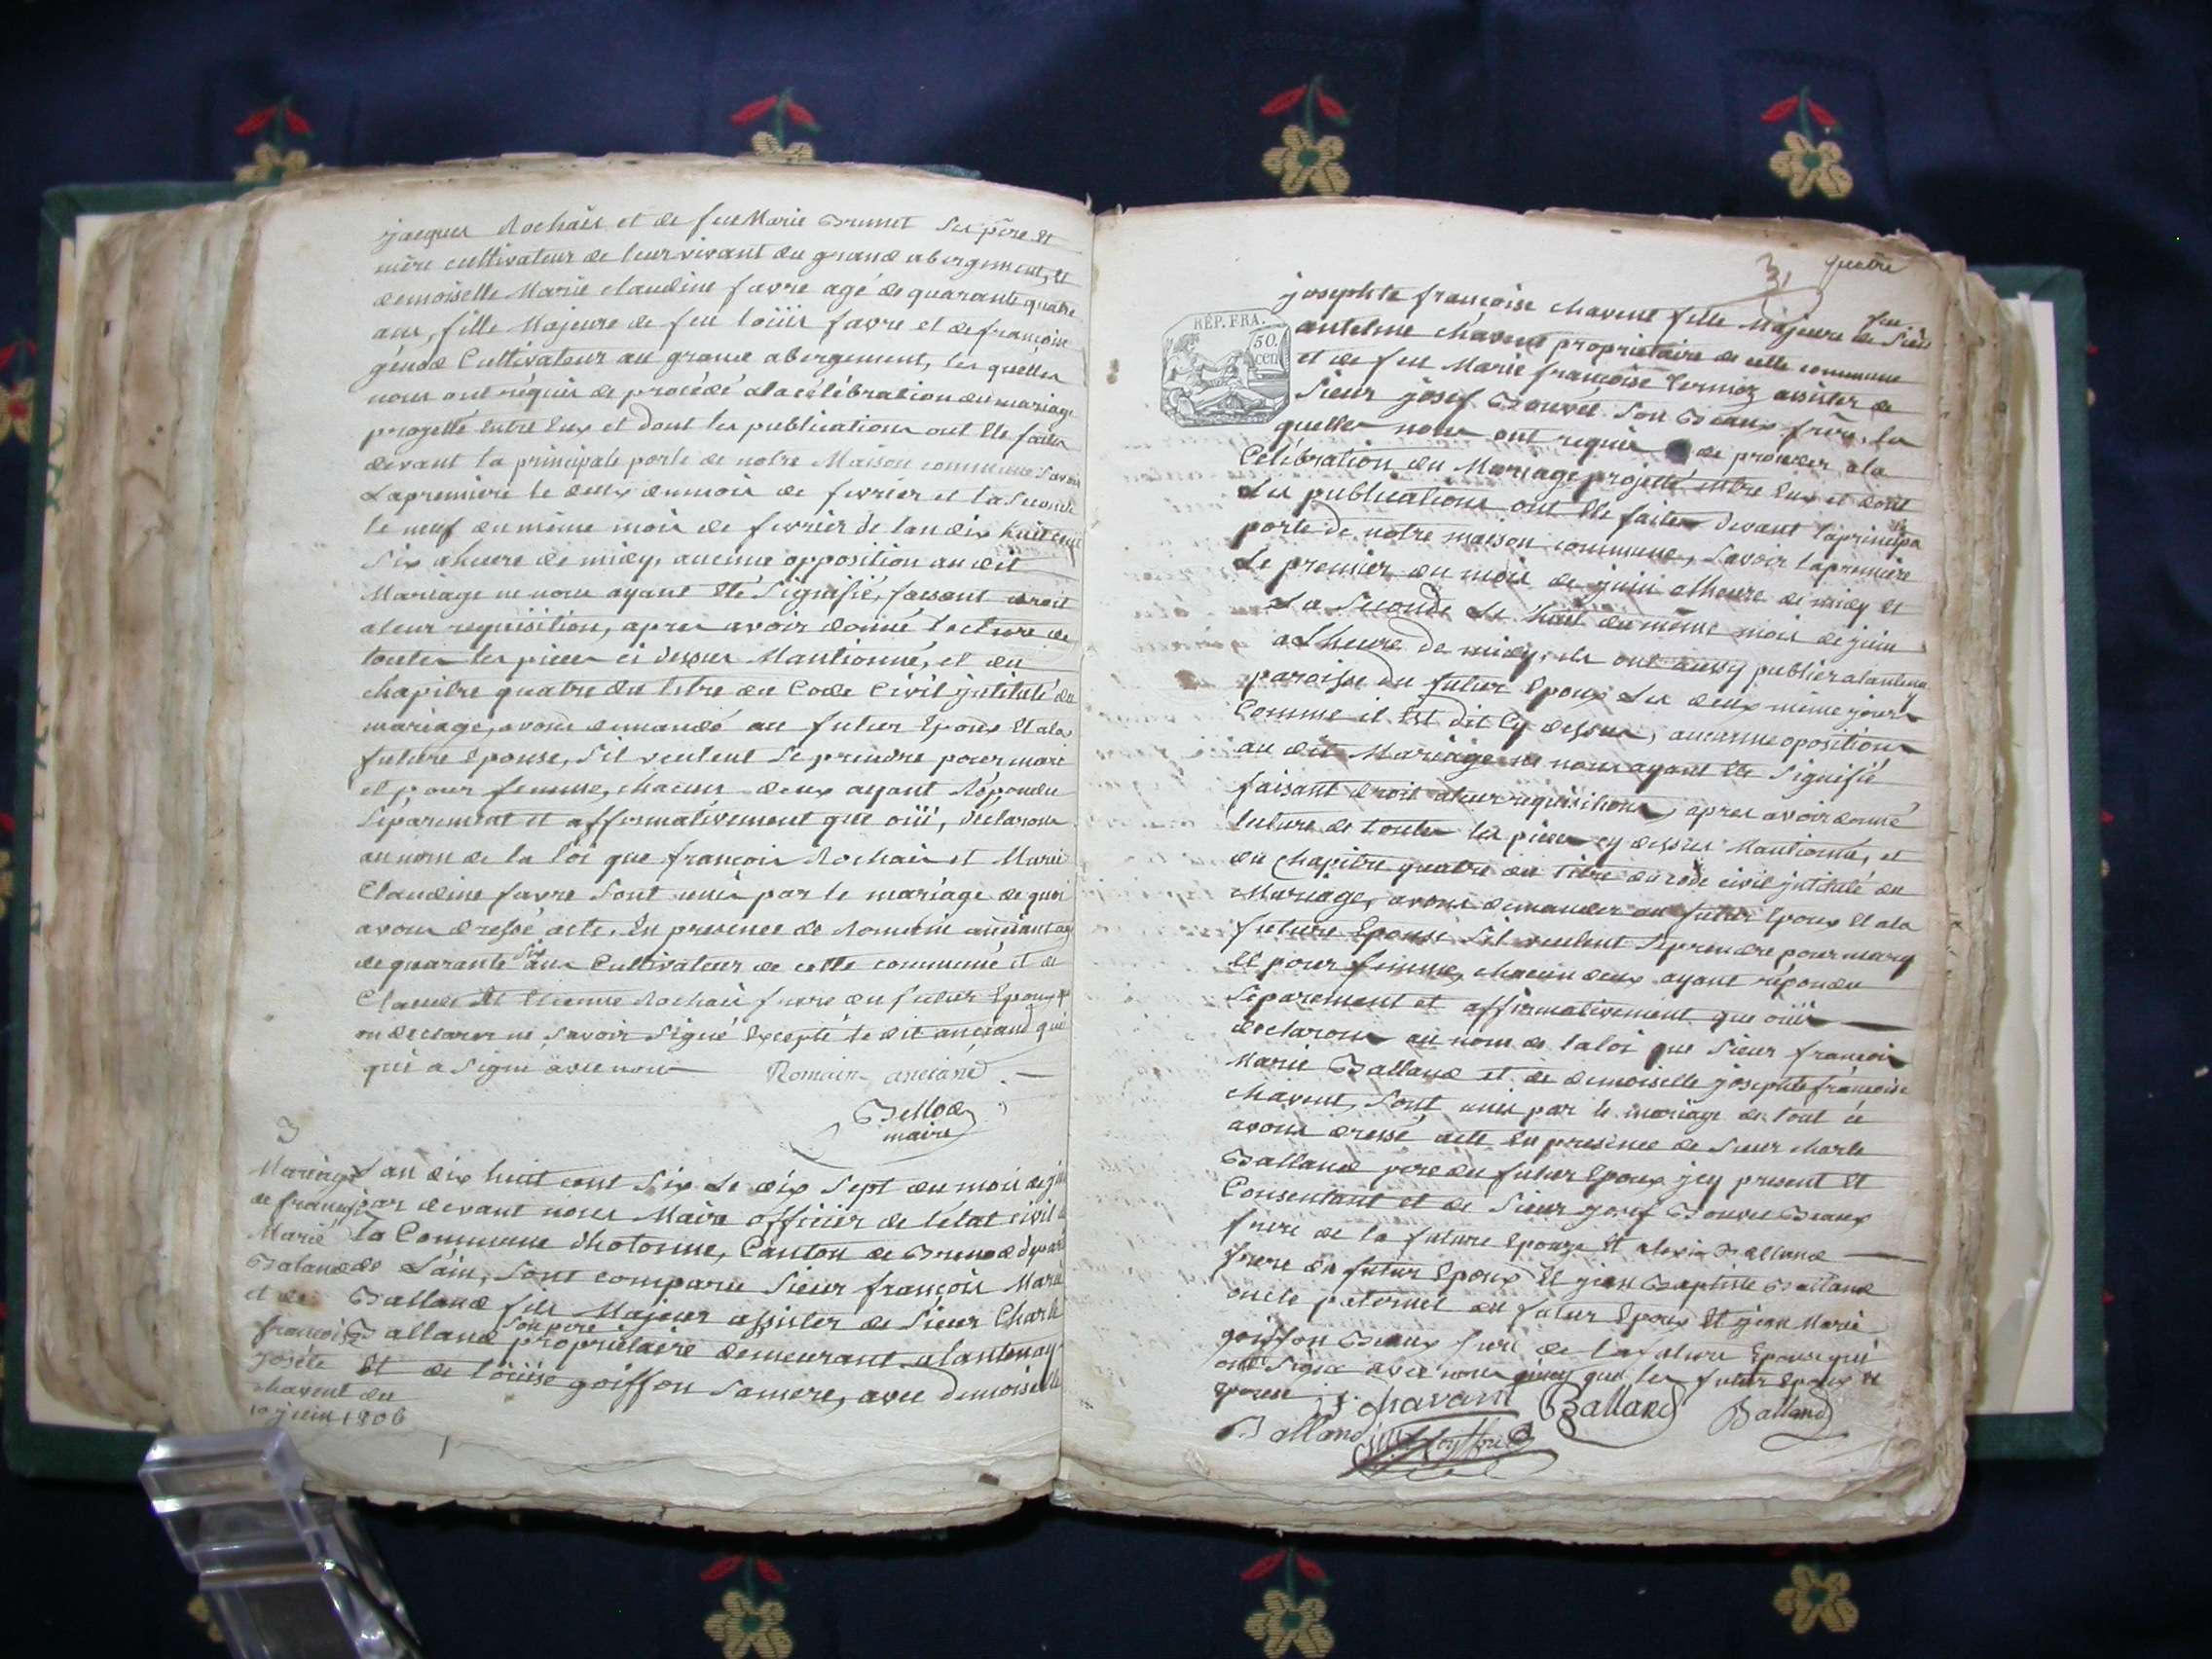 jacques Rochaix et de feu Marie Brunet Ses père et
mère cultivateur de leur vivant du grand abergement, et
demoiselle Marie claudine favre agé de quarante quatre
ans, fille Majeure de feu loüis favre et de françoise
génod Cultivateur au grand abergement, les quélles
nous ont réquis de procédé a la célébration du mariage
projetté entre Eux et dont les publications ont Eté faites
devant la principale porte de notre Maison commune Savoir
La premiere le deux du mois de fevrier et la Seconde
le neuf du même mois de fevrier de l'an dix huit cent
Six a heure de midy, aucune opposition au dit
Mariage ne nous ayant Eté Signifié, faisant droit
a leur requisition, apres avoir donné lecture de
toutes les pieces ci dessus Mantionné, et du
chapitre quatre du titre du Code Civil jntitulé du
mariage, avons demandé au futur Epoux Et a la
future Epouse, s'il veulent Se prendre pour mari
et pour femme, chacuns deux ayant Répondu
Séparement et affirmativement que oüi, declarons
au nom de la loi que françois Rochaix et Marie
Claudine favre Sont unis par le mariage de quoi
avons dressé acte, En presence de Romain anciant agé
de quarante Six ans Cultivateur de cette commune et de
Claude Et Etienne Rochaix frere du futur Epoux qui
on déclarer ne Savoir Signé Excepté le dit anciand qui
qui a Signé avec nous Romain anciand
Bellod
maire
3
Mariage
de françois
Marie
Baland
et de
françoise
joséte
chavent du
10 juin 1806
L'an dix huit cent Six Le dix Sept du mois de juin
par devant nous Maire officier de l'état civil de
la Commune dhotonne, Canton de Brenod depart
de Lain, Sont comparu Sieur françois Marie
Balland fils Majeur assister de Sieur Charle
Balland Son pere propriétaire demeurant a lantenay
Et de loüise goiffon Samere, avec demoiselle
3, quatre
josephte françoise chavent fille Majeure de feu Sieur
antelme chavent proprietaire de cette commune
et de feu Marie françoise assister de
Sieur josef Bouvet Son Beaux frère, les
quelles nous ont requis de proceder a la
Célébration du Mariage projetté entre Eux et dont
Les publications ont Eté faites devant la principa
porte de notre maison commune, Savoir la premiere
Le premier du mois de juin a lheure de midy et
La Seconde Le huit du même mois de juin
a L heure de midy, Et ont aussy publier a lantenay
paroisse du futur Epoux Les deux même jours
Comme il Est dit Cy dessus, aucunne oposition
au dit Mariage ne nous ayant Eté Signifié
faisant droit a leur requisitions, apres avoir donné
lecture de toutes les pieces cy dessus Mantionné, et
du chapitre quatre du titre du code civil jntitulé du
Mariage, avons demander au futur Epoux Et a la
future Epouse S'il veulent Se prendre pour mary
Et pour femme, chacun deux ayant répondu
Séparement et affirmativement que oüi
declarons au nom de la loi que Sieur francois
Marie Balland et de demoiselle josephte francoise
chavent, Sont unis par le mariage de tout ce
avons dressé acte En presence de Sieur charle
Balland pere du futur Epoux jcy present Et
Consentant et de Sieur josef Bouvet Beaux
frere de la future Epouze Et alexis Balland
frere du futur Epoux Et jean Baptiste Balland
oncle paternel du futur Epoux Et jean Marie
goiffon Beaux frere de la future Epouse qui
ont Signé avec nous que les futur Epoux et
Epouse J. f. chavant Balland Balland
Balland
RÉP. FRA.
50.
cen